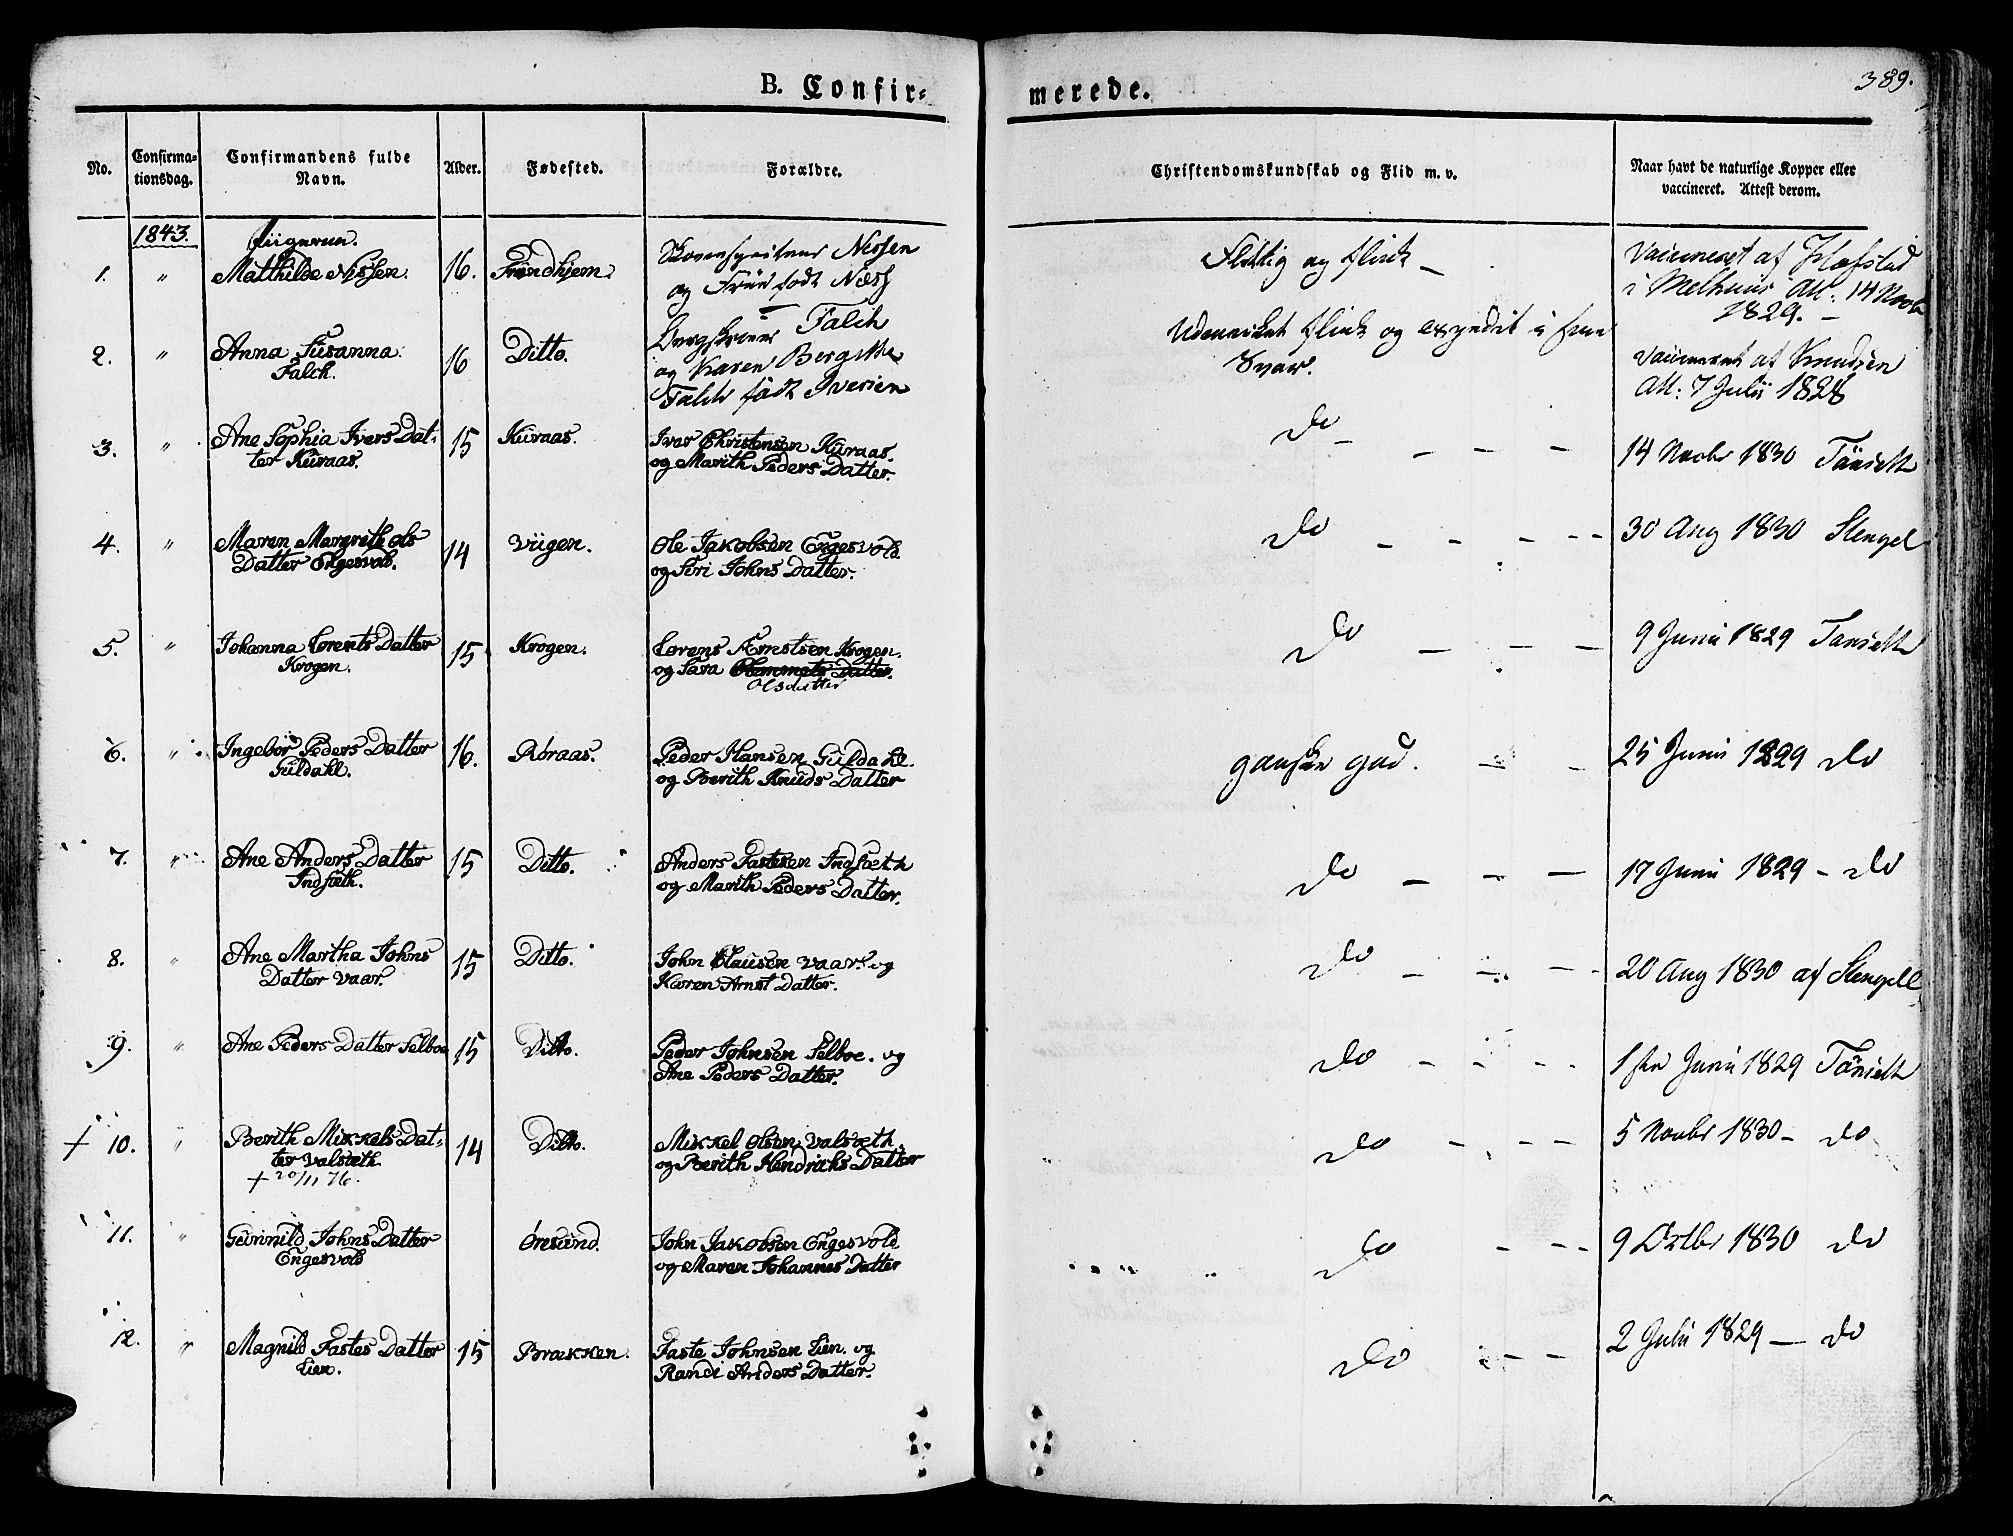 B. Confir=
merede.
389.
No.
Confirma=
tionsdag.
Confirmandens fulde
Navn.
Alder.
Fødested.
Forældre.
Christendomskundskab og Flid m. v.
Naar havt de naturlige Kopper eller
vaccineret. Attest derom.
1843.
Piigerne.
1. " Mathilde Nissen. 16. Trondhjem.
Nissen
og Frue født
Flittig og flink —
Vaccineret af Hofstad
i Melhuus Att: 14 Novbr
1829. —
2. " Anna Susanna
Falch. 16 Ditto.
Bergskriver Falch
og Karen Bergithe
Falch født Iversen
Udmærket flink og expedit i sine
Svar.
Vaccineret af Knudsen
Att: 7 Julii 1828
3. " Ane Sophia Ivers Dat-
ter Kuraas. 15 Kuraas.
Ivar Christensen Kuraas.
og Marith Peders Datter.
do — — — —
14 Novbr 1830 Tønseth
4. " Maren Margrith Ols
Datter Engesvold. 14 Viigen.
Ole Jakobsen Engesvold
og Siri Johns Datter.
do — — — — —
30 Aug 1830 Stengel
5. " Johanna Lorents Datter
Krogen. 15 Krogen.
Lorens Arntsen Krogen.
og Sara Clemmets Datter.
Olsdatter
do — — —
9 Junii 1829 Tønseth
6. " Ingebor Peders Datter
Guldahl. 16. Røraas.
Peder Hansen Guldahl.
og Berith Knuds Datter
ganske god. — —
25 Junii 1829 do
7. " Ane Anders Datter
Indsæth. 15 Ditto.
Anders Fastesen Indsæth
og Marith Peders Datter.
do — — —
17 Junii 1829 — do
8. " Ane Martha Johns
Datter Vaar. 15 Ditto.
John Clausen Vaar. og
Karen Arnst Datter.
do — — —
20 Aug 1830 af Stengell
9. " Ane Peders Datter Selboe 15 Ditto.
Peder Johnsen Selboe. og
Ane Peders Datter.
do — — — —
1ste Junii 1829 Tønseth
+ 10. " Berith Mikkels Dat-
ter Valsæth. 14 Ditto.
+ 20/11 76.
Mikkel Olsen Valsæth.
og Berith Hendrichs Datter
do — — —
5 Novbr 1830 — do
11. " Gunnild Johns Datter
Engesvold Øresund.
John Jakobsen Engesvold
og Maren Johannes Datter
do — — —
9 Octbr 1830 do
12. " Magnild Fastes Datter
Lien. 15 Brækken.
Faste Johnsen Lien. og
Randi Anders Datter.
do — — —
2 Julii 1829 — do